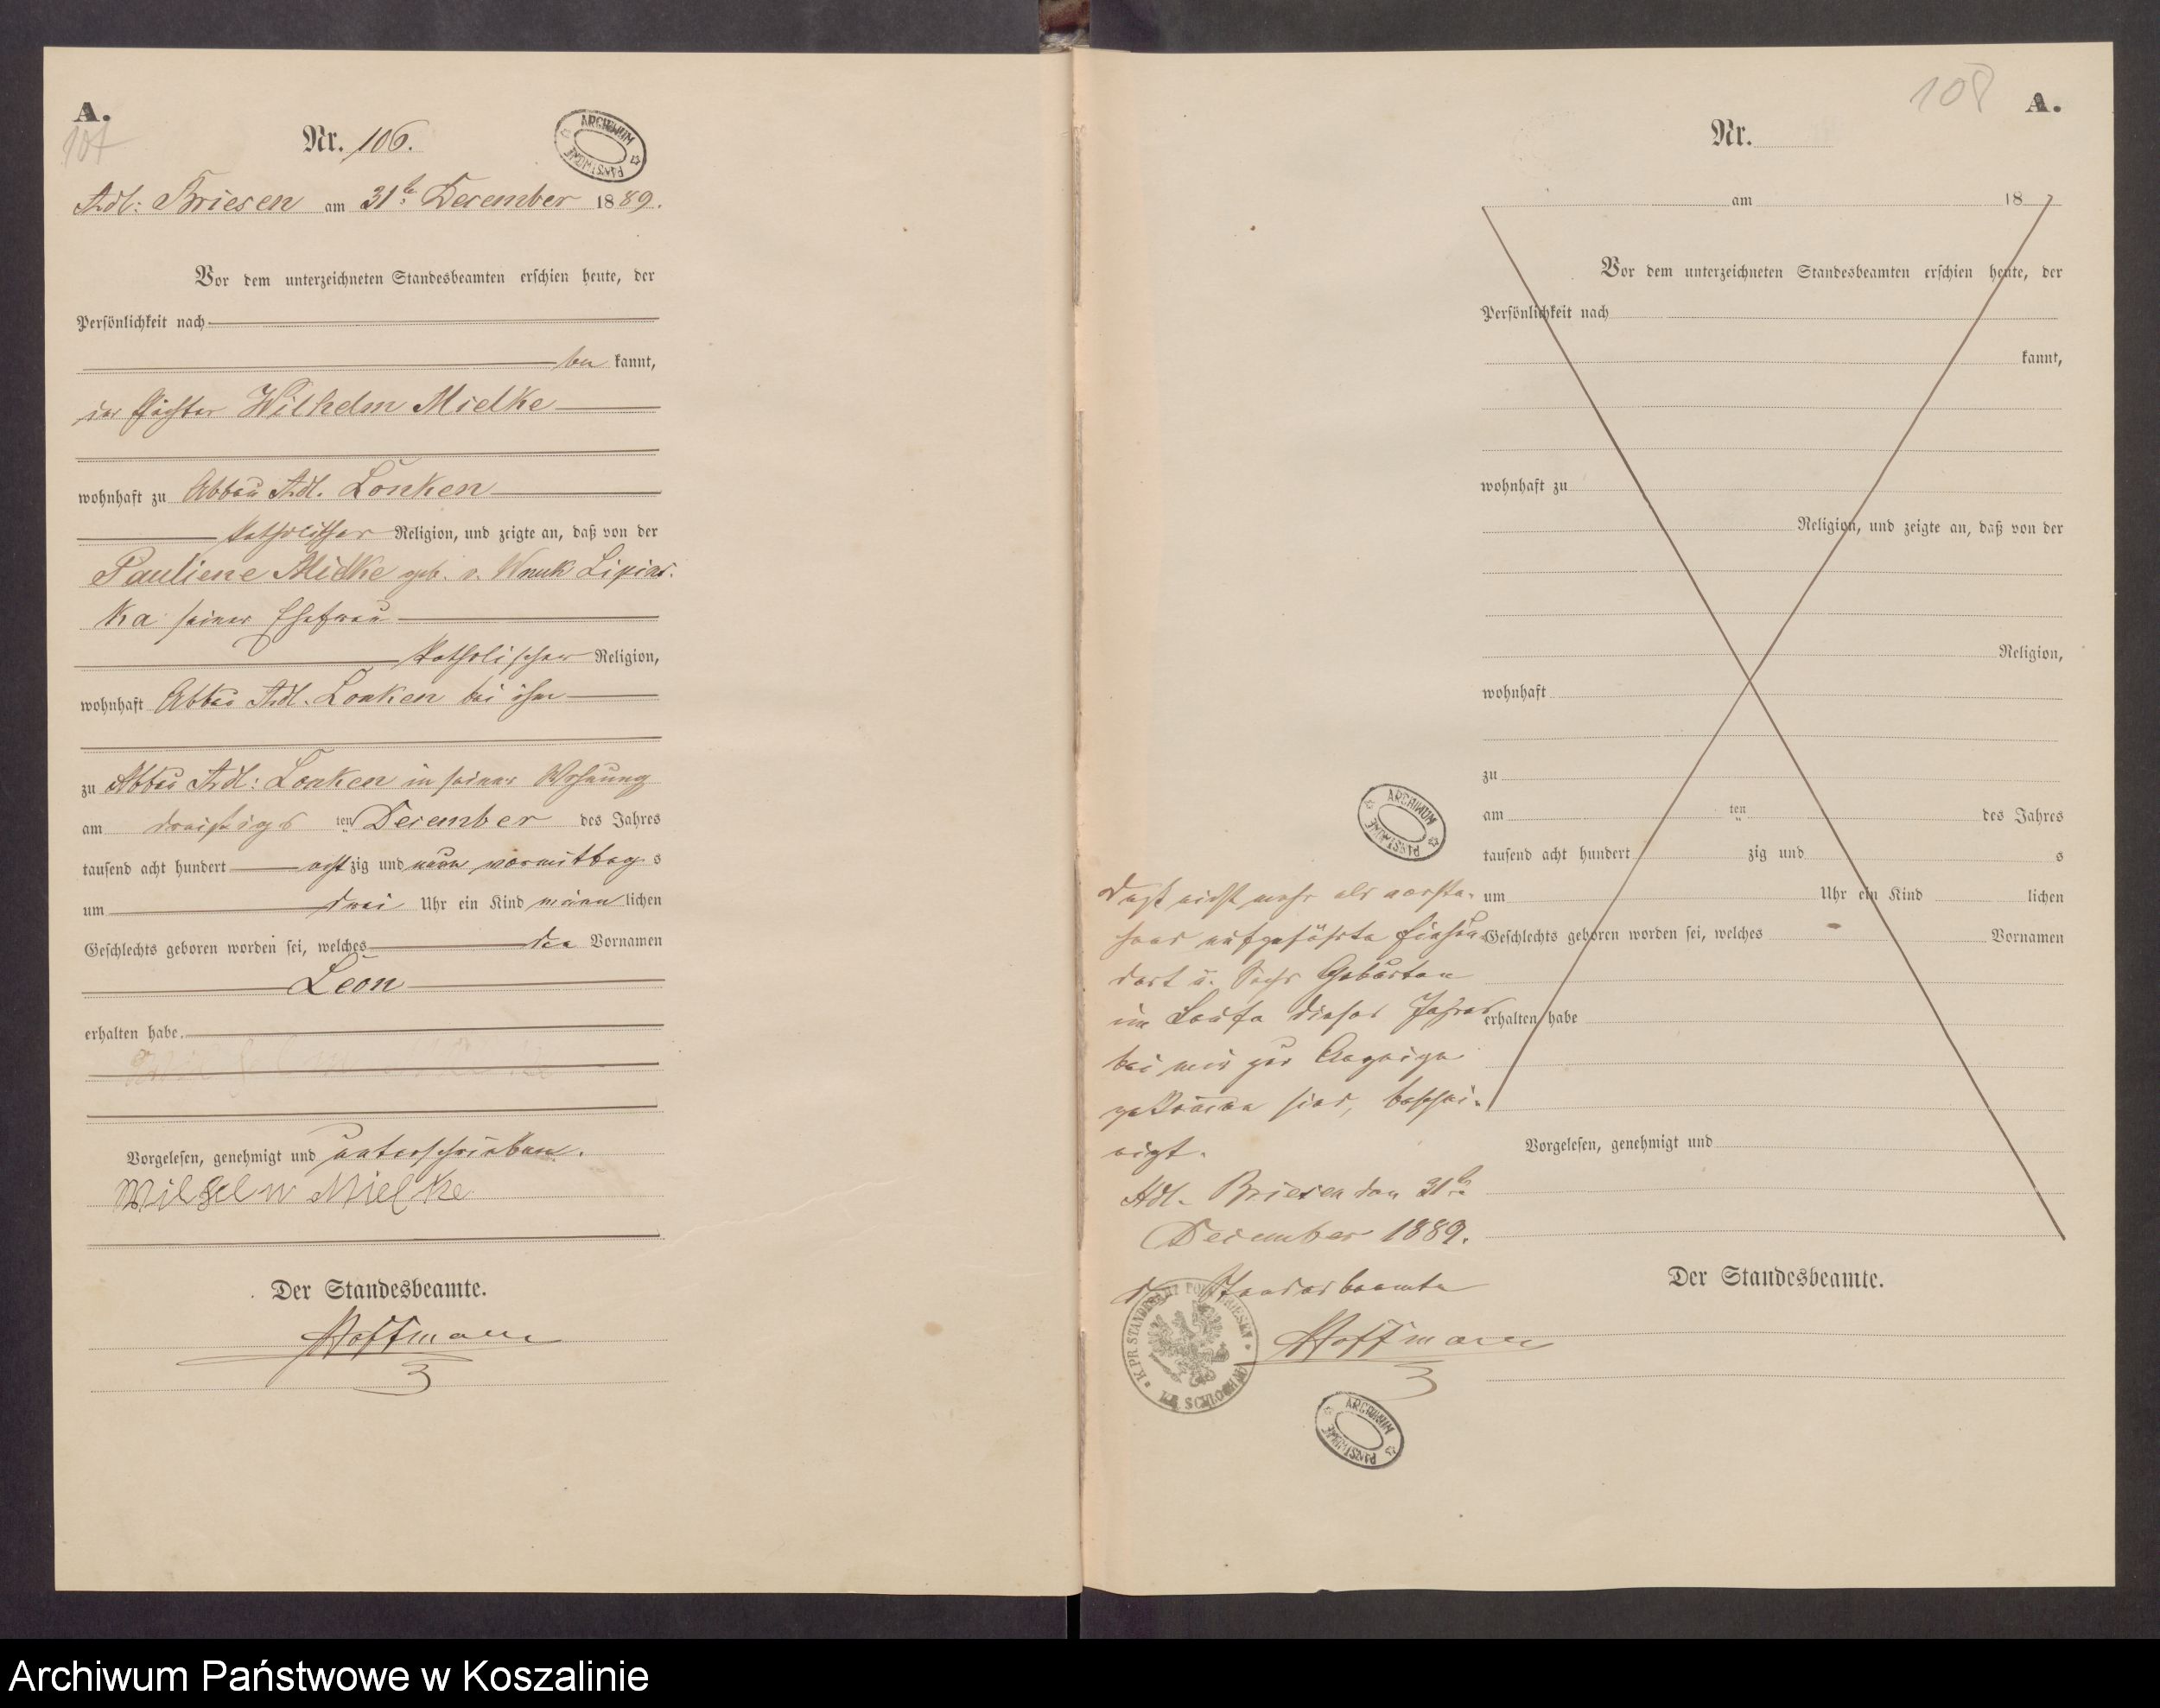 A.
107
Nr. 106.
ARCHIWUM PAŃSTWOWE
Adl: Briesen am 31t. December 1889.
Vor dem unterzeichneten Standesbeamten erschien heute, der
Persönlichkeit nach
be kannt,
der Pächter Wilhelm Mielke
wohnhaft zu Abbau Adl. Lonken
katholischer Religion, und zeigte an, daß von der
Pauliene Mielke geb. v. Wnuk Lipins-
ka seiner Ehefrau
katholischer Religion,
wohnhaft Abbau Adl. Lonken bei ihm
zu Abbau Adl: Lonken in seiner Wohnung
am dreißigs ten December des Jahres
tausend acht hundert acht zig und neun vormittag s
um drei Uhr ein Kind männ lichen
Geschlechts geboren worden sei, welches den Vornamen
Leon
erhalten habe.
Vorgelesen, genehmigt und unterschrieben.
Wilhelm Mielke
Der Standesbeamte.
Hoffmann
108
A.
Nr.
am 18
Vor dem unterzeichneten Standesbeamten erschien heute, der
Persönlichkeit nach
kannt,
wohnhaft zu
Religion, und zeigte an, daß von der
Religion,
wohnhaft
zu
am ten des Jahres
tausend acht hundert zig und s
um Uhr ein Kind lichen
Geschlechts geboren worden sei, welches Vornamen
erhalten habe
Vorgelesen, genehmigt und
Der Standesbeamte.
ARCHIWUM PAŃSTWOWE
Daß nicht mehr als vorste-
hend aufgeführte Einhun-
dert u. Sechs Geburten
im Laufe dieses Jahres
bei mir zur Anzeige
gekommen sind, beschei-
nigt.
Adl. Briesen den 31t.
December 1889.
d. Standesbeamte
Hoffmann
ARCHIWUM PAŃSTWOWE
Archiwum Państwowe w Koszalinie